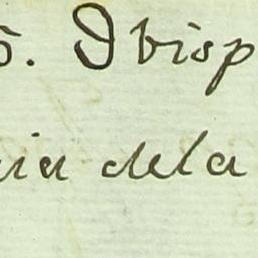 s. Obisp
ia dela